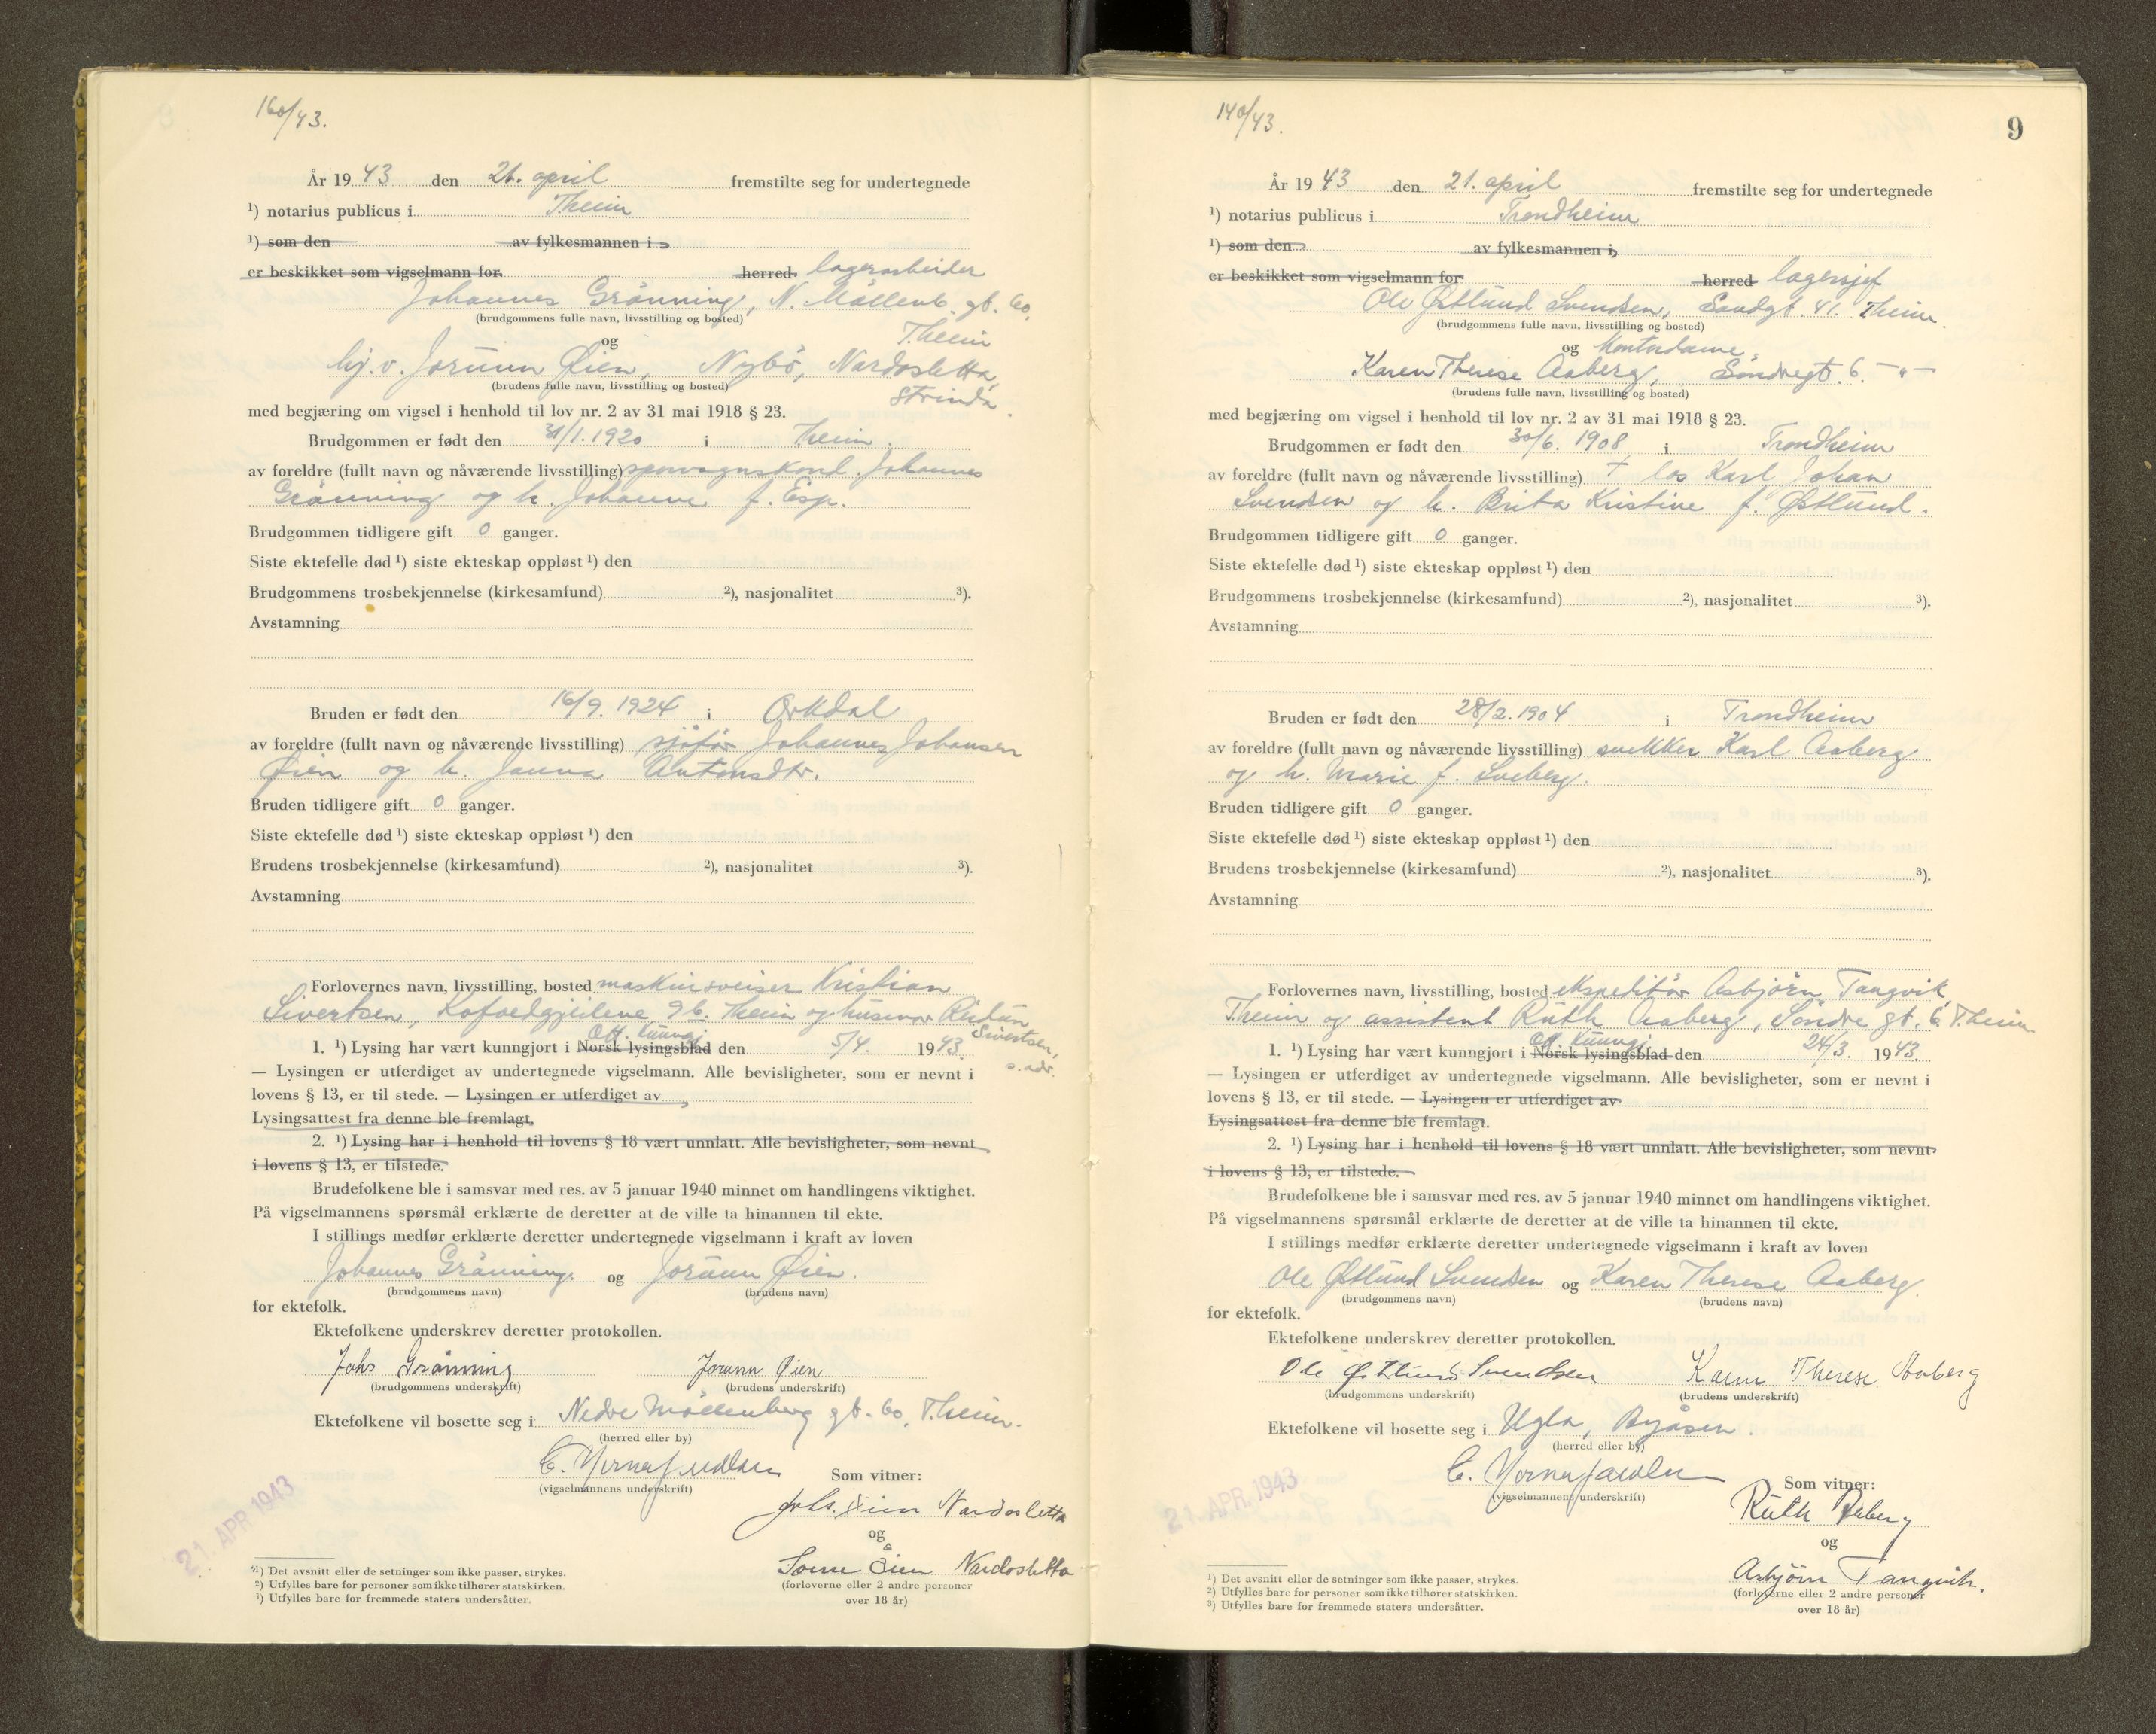 160/43.
År 19 43 den 21. april fremstilte seg for undertegnede
¹) notarius publicus i Theim
¹) som den av fylkesmannen i
er beskikket som vigselmann for herred lagerarbeider
Johannes Grönning, N. Möllenb. gt. 60,
(brudgommens fulle navn, livsstilling og bosted)
Theim
og
hj. v. Jorunn Øien, Nybö, Nardosletta,
(brudens fulle navn, livsstilling og bosted)
Strinda.
med begjæring om vigsel i henhold til lov nr. 2 av 31 mai 1918 § 23.
Brudgommen er født den 31/1. 1920 i Theim.
av foreldre (fullt navn og nåværende livsstilling) sporvognskond. Johannes
Grönning og h. Johanne f. Esp.
Brudgommen tidligere gift 0 ganger.
Siste ektefelle død ¹) siste ekteskap oppløst ¹) den
Brudgommens trosbekjennelse (kirkesamfund) ²), nasjonalitet ³).
Avstamning
Bruden er født den 16/9. 1924 i Orkdal
av foreldre (fullt navn og nåværende livsstilling) sjåför Johannes Johansen
Øien og h. Janna Antonsdtr.
Bruden tidligere gift 0 ganger.
Siste ektefelle død ¹) siste ekteskap oppløst ¹) den
Brudens trosbekjennelse (kirkesamfund) ²), nasjonalitet ³).
Avstamning
Forlovernes navn, livsstilling, bosted maskinsveiser Kristian
Sivertsen, Kofoedgjeilene 9b. Theim og husmor Reidun
Sivertsen,
Off. kunngj
1. ¹) Lysing har vært kunngjort i Norsk lysingsblad den 5/4. 1943.
s. adr.
— Lysingen er utferdiget av undertegnede vigselmann. Alle bevisligheter, som er nevnt i
lovens § 13, er til stede. — Lysingen er utferdiget av
Lysingsattest fra denne ble fremlagt.
2. ¹) Lysing har i henhold til lovens § 18 vært unnlatt. Alle bevisligheter, som nevnt
i lovens § 13, er tilstede.
Brudefolkene ble i samsvar med res. av 5 januar 1940 minnet om handlingens viktighet.
På vigselmannens spørsmål erklærte de deretter at de ville ta hinannen til ekte.
I stillings medfør erklærte deretter undertegnede vigselmann i kraft av loven
Johannes Grönning. og Jorunn Øien.
(brudgommens navn) (brudens navn)
for ektefolk.
Ektefolkene underskrev deretter protokollen.
Johs Grönning Jorunn Øien
(brudgommens underskrift) (brudens underskrift)
Ektefolkene vil bosette seg i Nedre Möllenberg gt. 60, Theim.
(herred eller by)
(vigselmannens underskrift) Som vitner:
Johs. Øien Nardosletta
21. APR. 1943
og
Øien Nardosletta
(forloverne eller 2 andre personer
over 18 år)
¹) Det avsnitt eller de setninger som ikke passer, strykes.
²) Utfylles bare for personer som ikke tilhører statskirken.
³) Utfylles bare for fremmede staters undersåtter.
140/43.
9
År 19 43 den 21. april fremstilte seg for undertegnede
¹) notarius publicus i Trondheim
¹) som den av fylkesmannen i
er beskikket som vigselmann for herred lagersjef
Ole Østlund Svendsen, Sandgt. 41. Theim.
(brudgommens fulle navn, livsstilling og bosted)
og kontordame
Karen Therese Aaberg, Söndregt. 6. — " —
(brudens fulle navn, livsstilling og bosted)
med begjæring om vigsel i henhold til lov nr. 2 av 31 mai 1918 § 23.
Brudgommen er født den 30/6. 1908 i Trondheim
av foreldre (fullt navn og nåværende livsstilling) † los Karl Johan
Svendsen og h. Brita Kristine f. Østlund.
Brudgommen tidligere gift 0 ganger.
Siste ektefelle død ¹) siste ekteskap oppløst ¹) den
Brudgommens trosbekjennelse (kirkesamfund) ²), nasjonalitet ³).
Avstamning
Bruden er født den 28/2. 1904 i Trondheim
av foreldre (fullt navn og nåværende livsstilling) snekker Karl Aaberg
og h. Marie f. Soeberg.
Bruden tidligere gift 0 ganger.
Siste ektefelle død ¹) siste ekteskap oppløst ¹) den
Brudens trosbekjennelse (kirkesamfund) ²), nasjonalitet ³).
Avstamning
Forlovernes navn, livsstilling, bosted ekspeditör Asbjörn Tangvik,
Theim og assistent Ruth Aaberg, Söndre gt. 6. Theim.
Off. kunngj
1. ¹) Lysing har vært kunngjort i Norsk lysingsblad den 24/3. 1943.
— Lysingen er utferdiget av undertegnede vigselmann. Alle bevisligheter, som er nevnt i
lovens § 13, er til stede. — Lysingen er utferdiget av
Lysingsattest fra denne ble fremlagt.
2. ¹) Lysing har i henhold til lovens § 18 vært unnlatt. Alle bevisligheter, som nevnt
i lovens § 13, er tilstede.
Brudefolkene ble i samsvar med res. av 5 januar 1940 minnet om handlingens viktighet.
På vigselmannens spørsmål erklærte de deretter at de ville ta hinannen til ekte.
I stillings medfør erklærte deretter undertegnede vigselmann i kraft av loven
Ole Østlund Svendsen og Karen Therese Aaberg.
(brudgommens navn) (brudens navn)
for ektefolk.
Ektefolkene underskrev deretter protokollen.
Ole Østlund Svendsen Karen Therese Aaberg
(brudgommens underskrift) (brudens underskrift)
Ektefolkene vil bosette seg i Ugla, Byåsen.
(herred eller by)
(vigselmannens underskrift) Som vitner:
Ruth Aaberg
21. APR. 1943
og
Asbjörn Tangvik.
(forloverne eller 2 andre personer
over 18 år)
¹) Det avsnitt eller de setninger som ikke passer, strykes.
²) Utfylles bare for personer som ikke tilhører statskirken.
³) Utfylles bare for fremmede staters undersåtter.